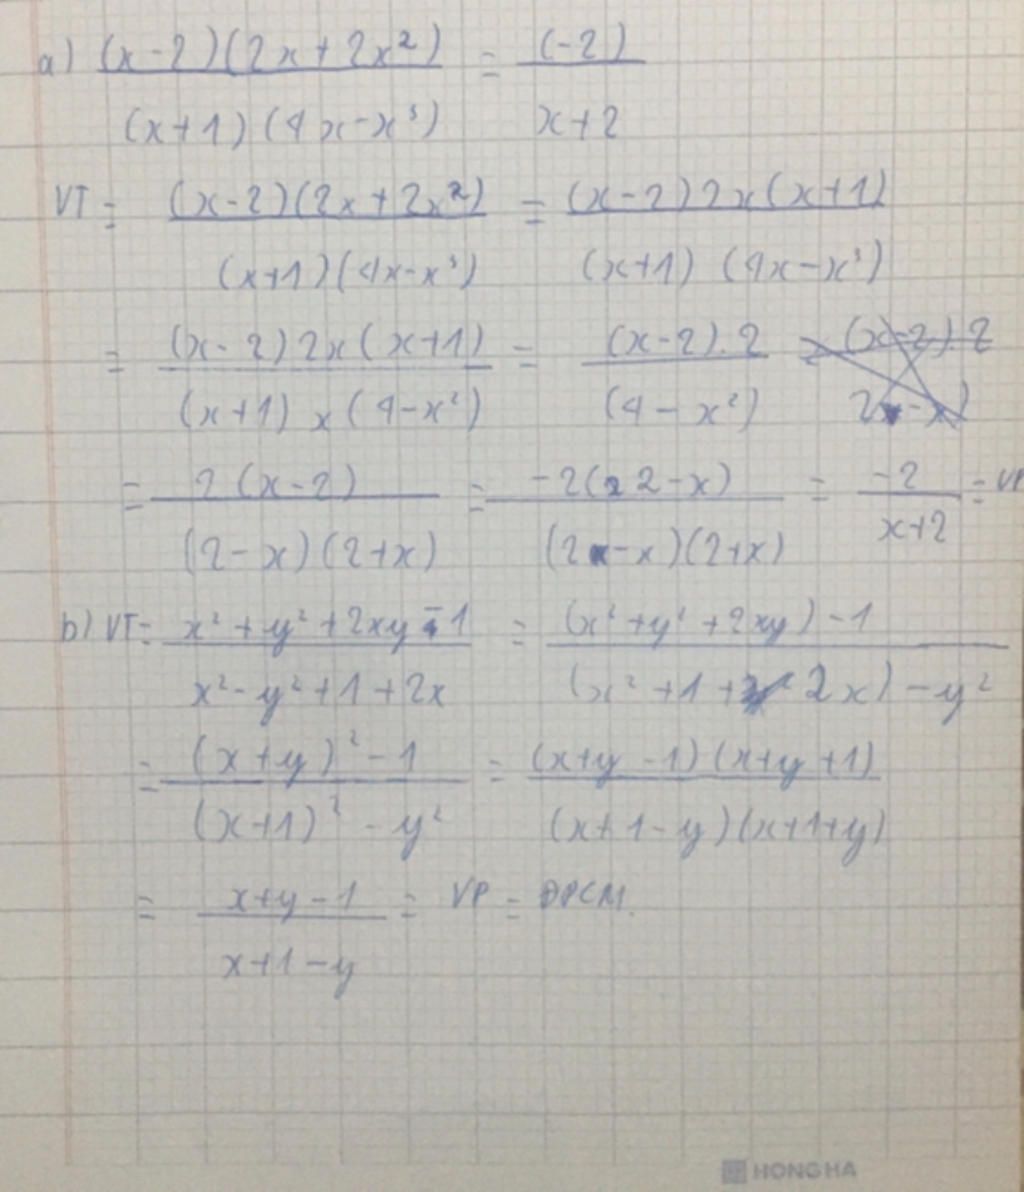 a) (x-2)(2x+2x²) / (x+1)(4x-x³) = (-2) / x+2
VT = (x-2)(2x+2x²) / (x+1)(4x-x³) = (x-2)2x(x+1) / (x+1)(4x-x³)
= (x-2)2x(x+1) / (x+1)x(4-x²) = (x-2).2 / (4-x²)
= 2(x-2) / (2-x)(2+x) = -2(2-x) / (2-x)(2+x) = -2 / x+2 = VP
b) VT = x²+y²+2xy-1 / x²-y²+1+2x = (x²+y²+2xy)-1 / (x²+1+2x)-y²
= (x+y)²-1 / (x+1)²-y² = (x+y-1)(x+y+1) / (x+1-y)(x+1+y)
= x+y-1 / x+1-y = VP = ĐPCM.
HONG HA